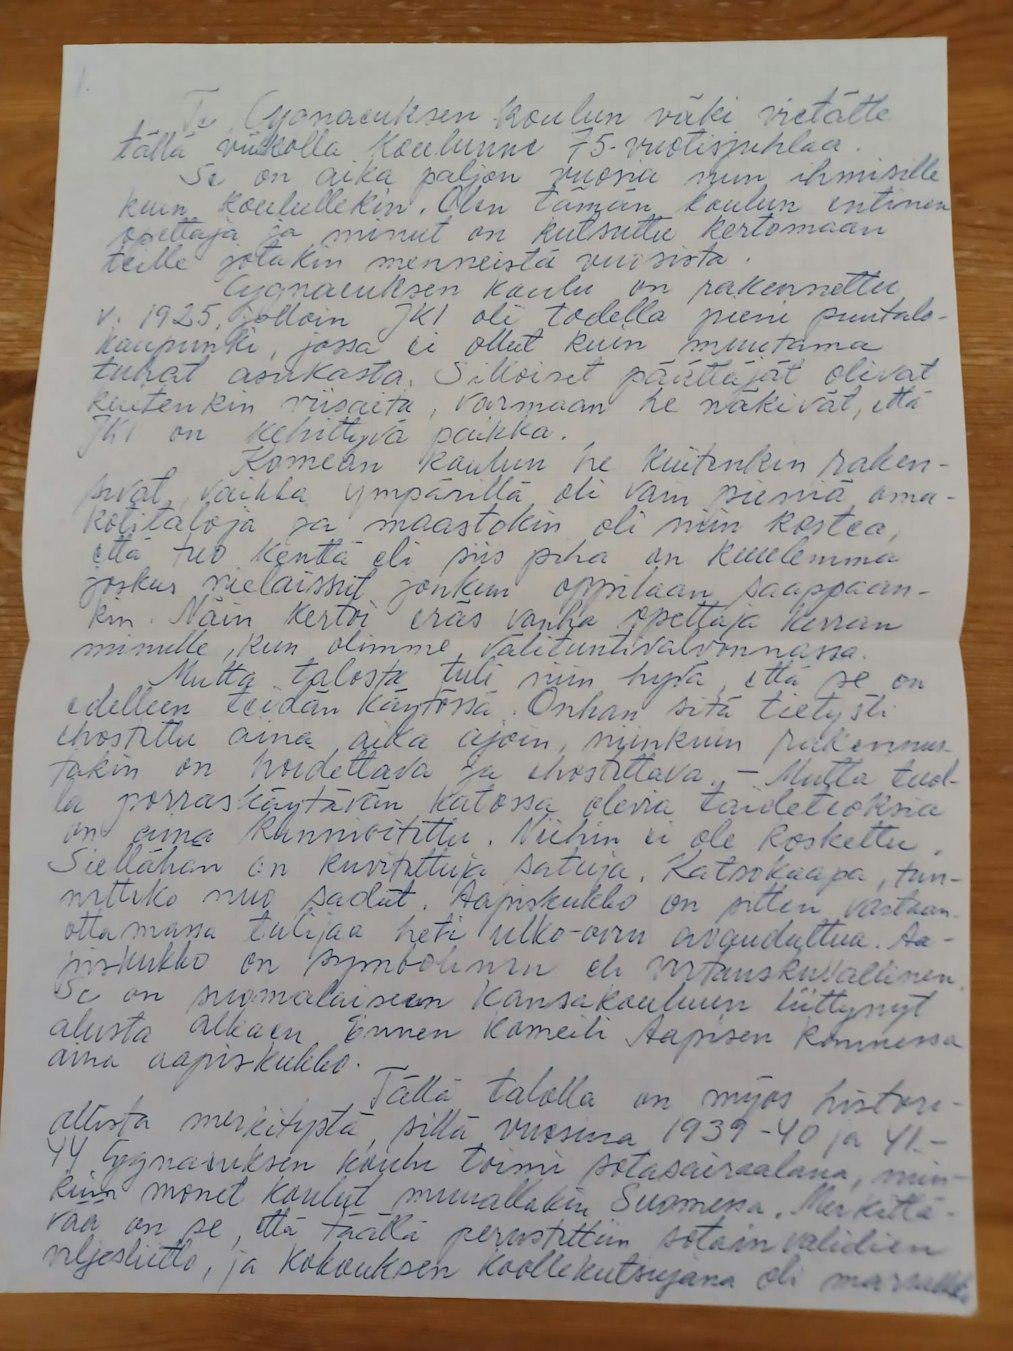 1.
Te, Cygnaeuksen koulun väki vietätte
tällä viikolla koulunne 75-vuotisjuhlaa.
Se on aika paljon vuosia niin ihmiselle
kuin koulullekin. Olen tämän koulun entinen
opettaja ja minut on kutsuttu kertomaan
teille jotakin menneistä vuosista.
Cygnaeuksen koulu on rakennettu
v. 1925, jolloin JKL oli todella pieni puutalo-
kaupunki, jossa ei ollut kuin muutama
tuhat asukasta. Silloiset päättäjät olivat
kuitenkin viisaita, varmaan he näkivät, että
JKL on kehittyvä paikka.
Komean koulun he kuitenkin raken-
sivat, vaikka ympärillä oli vain pieniä oma-
kotitaloja ja maastokin oli niin kostea,
että tuo kenttä eli siis piha on kuulemma
joskus nielaissut jonkun oppilaan saappaan-
kin. Näin kertoi eräs vanha opettaja kerran
minulle, kun olimme välituntivalvonnassa.
Mutta talosta tuli niin hyvä, että se on
edelleen teidän käytössä. Onhan sitä tietysti
ehostettu aina aika ajoin, niinkuin rakennus-
takin on hoidettava ja ehostettava. – Mutta tuol-
la porraskäytävän katossa olevia taideteoksia
on aina kunnioitettu. Niihin ei ole koskettu.
Siellähän on kuvitettuja satuja. Katsokaapa, tun-
netteko nuo sadut. Aapiskukko on sitten vastaan-
ottamassa tulijaa heti ulko-oven avauduttua. Aa-
piskukko on symbolinen eli vertauskuvallinen.
Se on suomalaiseen kansakouluun liittynyt
alusta alkaen. Ennen komeili Aapisen kannessa
aina aapiskukko.
Tällä talolla on myös histori-
allista merkitystä, sillä vuosina 1939-40 ja 41-
44 Cygnaeuksen koulu toimi sotasairaalana, niin-
kuin monet koulut muuallakin Suomessa. Merkittä-
vää on se, että täällä perustettiin sotainvalidien
veljesliitto, ja kokouksen koollekutsujana oli marsalkka